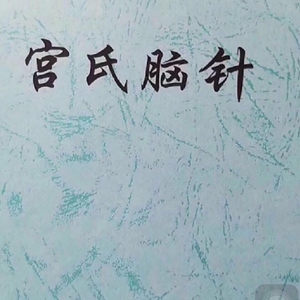 宫氏脑针